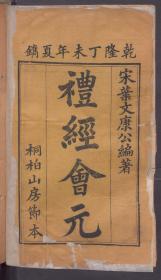 乾隆丁未年夏鐫
宋葉文康公編著
禮經會元
桐柏山房節本